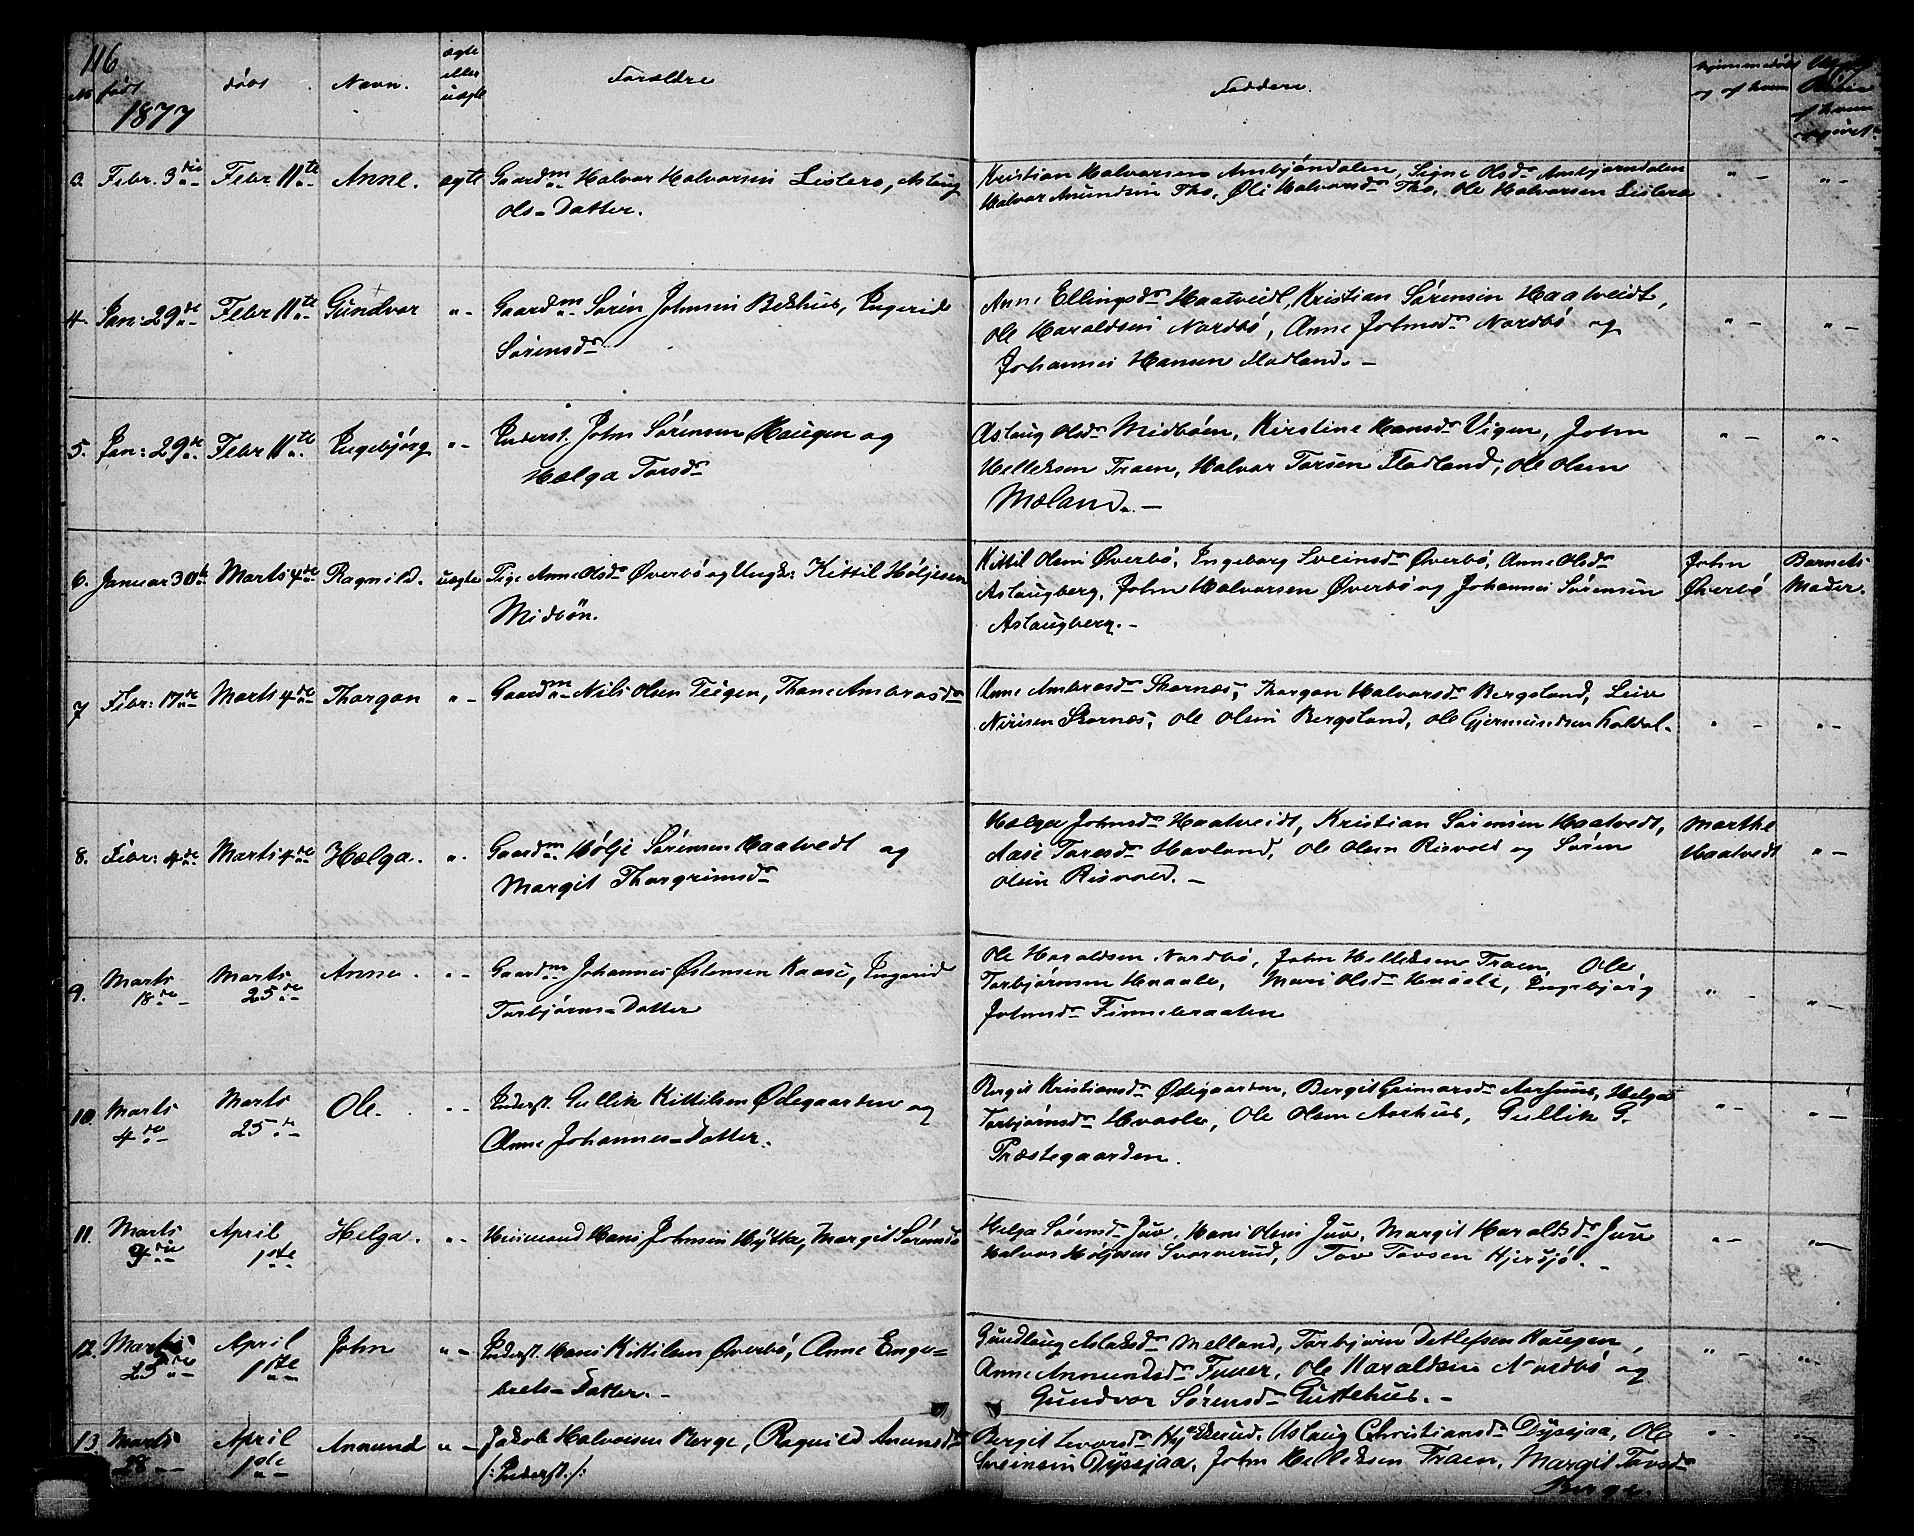 116
No født 1877
døbt
Navn.
ægte
eller
uægte
Forældre
Faddere.
hjemmedøbt
og af hvem
af hvem
3. Febr. 3die Febr 11te Anne. ægte Gaardm. Halvor Halvorsen Lislero, Aslaug
Ols=Datter.
Kristian Halvorsen Ambjöndalen, Signe Olsdr Ambjørndalen
Halvor Anundsen Tho, Øli Halvorsdr Tho, Ole Halvorsen Lislero
4. Jan: 29de Febr 11te Gundvor "- Gaardm. Sørin Johnsen Bekhus, Ingerid
Sørensdr
Anne Ellingsdr Haatveidt, Kristian Sørensen Haatveidt,
Ole Haraldsen Nordbö, Anne Johnsdr Nordbö og
Johannes Hansen Fladland. -
5. Jan: 29de Febr 11te Ingebjørg "- Inderst. John Sørensen Haugen og
Hælga Torsdr
Aslaug Olsdr Midböen, Kirstine Hansdr Vigen, John
Helleksen Traen, Halvor Torsen Fladland, Ole Olsen
Mæland. -
6. Januar 30te Marts 4de Ragnild. uægte Pige Anne Olsdr Øverbö og Ungk: Kittil Høljesen
Midbön.
Kittil Olsen Øverbö, Ingeborg Sveinsdr Øverbö, Anne Olsdr
Aslaugberg, John Halvorsen Øverbö og Johannes Sørensen
Aslaugberg. -
John
Øverbö
Barnets
Moder.
7 Febr: 17de Marts 4de Thorgon "- Gaardm. Nils Olsen Teigen, Thone Ambrosdr
Anne Ambrosdr Skornæs, Thorgon Halvorsdr Bergsland, Leiv
Nirisen Skornæs, Ole Olsen Bergsland, Ole Gjermundsen Kaldal. "- "-
8. Febr: 4de Marts 4de Hælga. ". Gaardm. Hølje Sørensen Haatvedt og
Margit Thorgrimsdr
Hælga Johnsdr Haatveidt, Kristian Sørensen Haatvedt,
Aase Torsdr Havland, Ole Olsen Risvold og Søren
Olsen Risvold. -
Marthe
Haatvedt "-
9. Marts 18de Marts 25de Anne. "- Gaardm. Johannes Østensen Kaase, Ingerid
Torbjørns=Datter
Ole Haraldsen Nordbö, John Helleksen Traen, Ole
Torbjørnsen Hvaale, Mari Olsdr Hvaale, Ingebjørg
Johnsdr Finnebraaten
10. Marts 4de Marts 25de Ole. "- Inderst. Gullik Kittilsen Ødegaarden og
Anne Johannes=Datter.
Bergit Kristiansdr Ødegaarden, Bergit Geimarsdr Aarhuus, Helga
Torbjørnsdr Hvaale, Ole Olsen Aarhus, Gullik G.
Præstegaarden.
11. Marts 9de April 1ste Helga. "- Huusmand Hans Johnsen Hytta, Margit Sørensdr
Helga Sørensdr Juv, Hans Olsen Juv, Margit Haraldsdr Juv
Halvor Høljesen Svarverud, Tov Tovsen Hjersjö. -
12. Marts 25de April 1ste John "- Inderst. Hans Kittilsen Øverbö, Anne Enge=
brets=Datter. -
Gundlaug Aslaksdr Melland, Torbjørn Detlefsen Haugen,
Anne Anmundsdr Tveer, Ole Haraldsen Nordbö og
Gundvor Sørensdr Guttehus. -
13. Marts 28 April 1ste Anmund "- Jakob Halvorsen Berge, Ragnild Anundsdr
/: Inderst. :/
Bergit Levorsdr Hjuksund, Aslaug Christiansdr Dysjaa, Ole
Sveinsen Dysjaa, John Helleksen Traen, Margit Tovsdr
Berge.